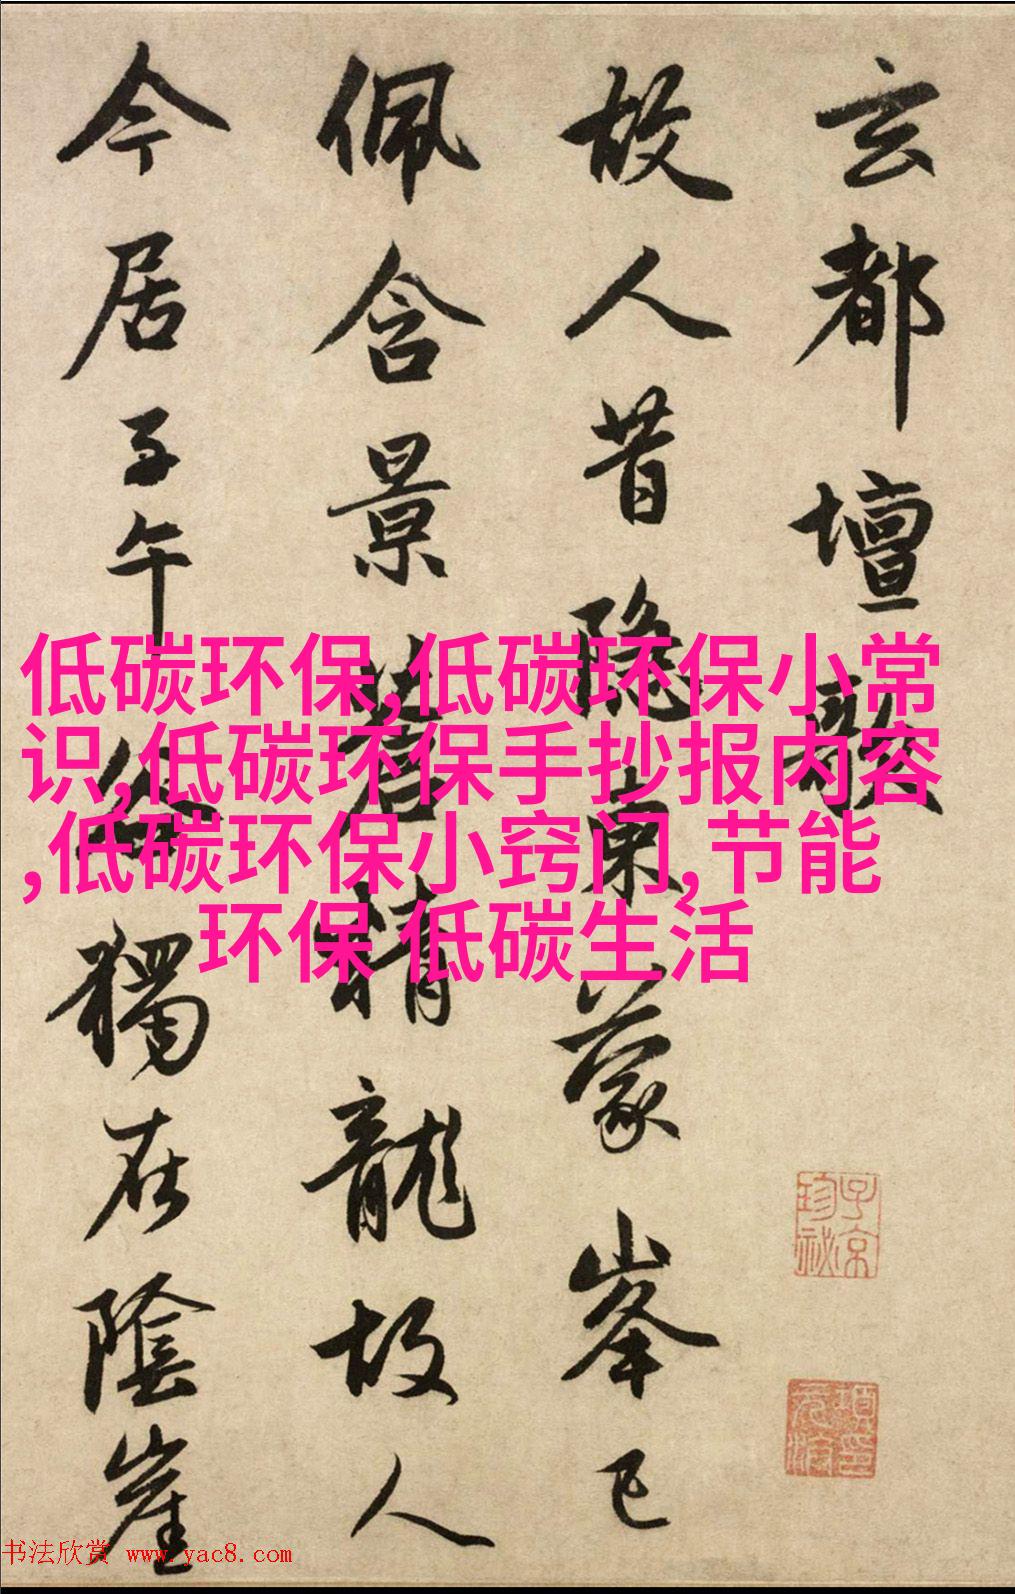 玄都壇歌
故人昔隱東蒙峯已
佩含景蒼精龍故人
今居子午谷獨在陰崖
低碳环保,低碳环保小常
识,低碳环保手抄报内容
,低碳环保小窍门,节能
环保 低碳生活
子京
珍祕
书法欣赏 www.yac8.com